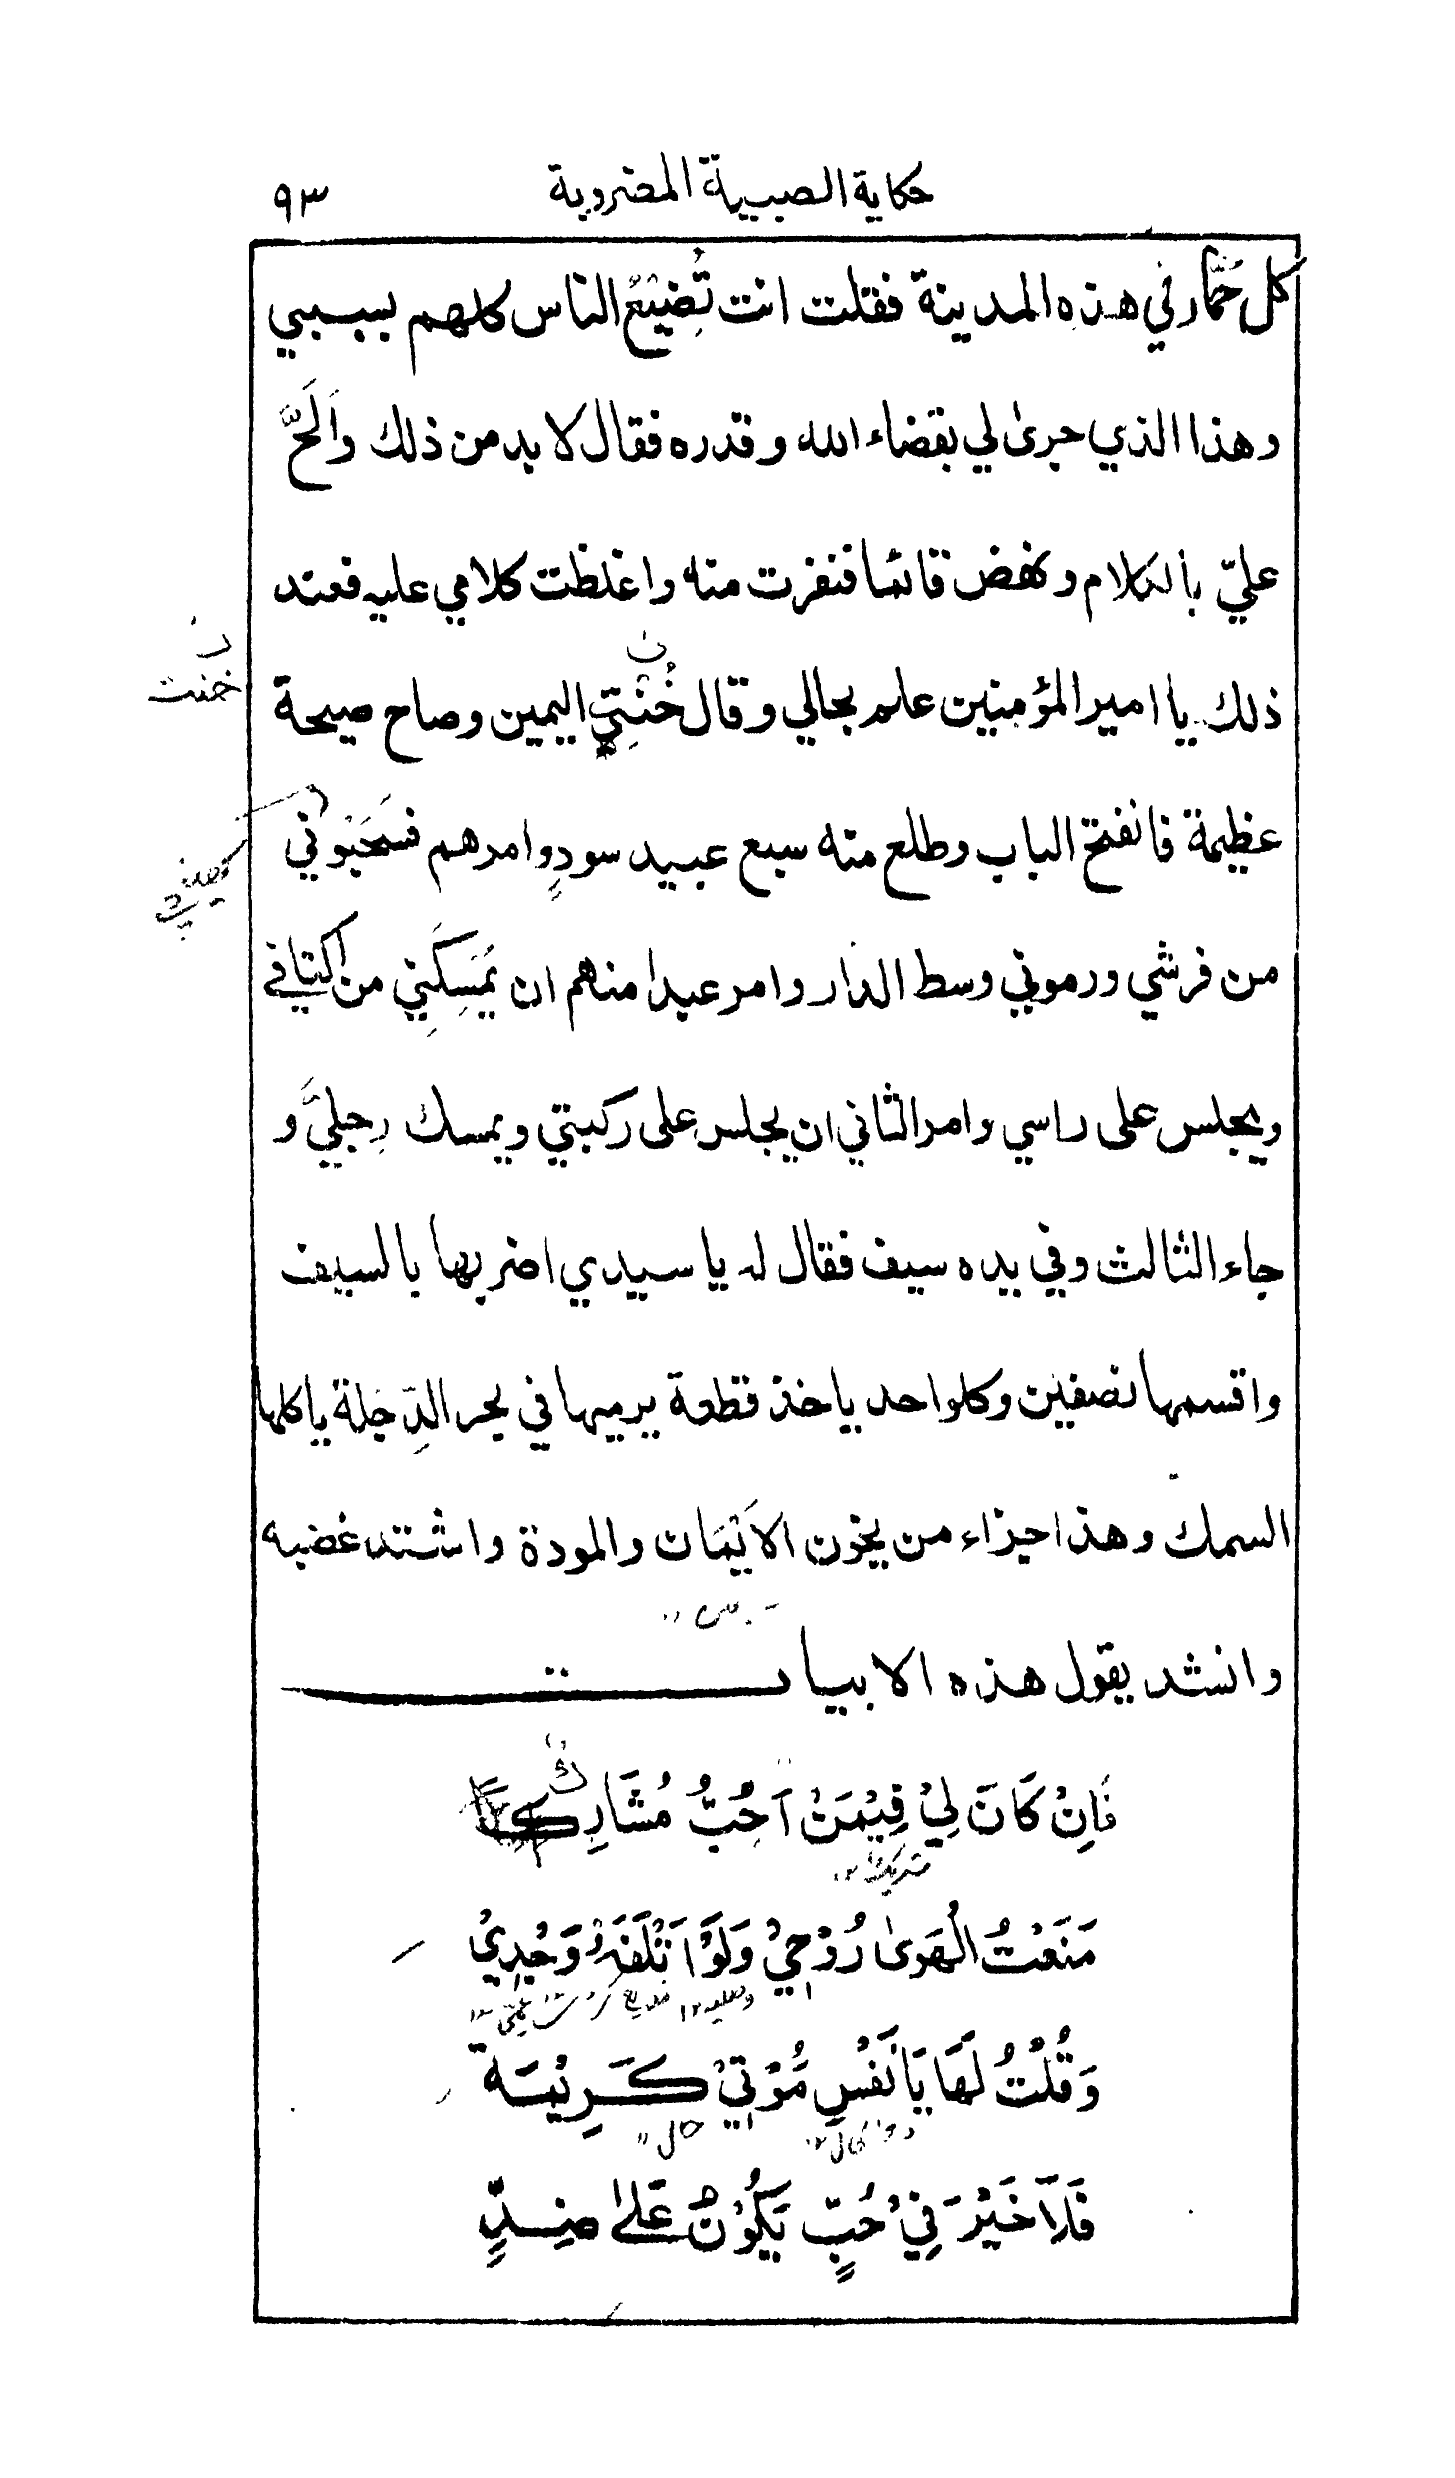 حكاية الصبية المضروبة ٩٣
كل حَمَّار في هذه المدينة فقلت انت تُضَيِّعُ الناس كلهم بسببي
وهذا الذي جرىٰ لي بقضاء الله وقدره فقال لا بد من ذلك واَلَحَّ
عليّ بالكلام ونهض قائما فنفرت منه واغلظت كلامي عليه فعند
ذلك يا امير المؤمنين علم بحالي وقال خُنْتِي اليمين وصاح صيحة
خنت
عظيمة فانفتح الباب وطلع منه سبع عبيد سودٍ وامرهم فسَحَبُوني
من فرشي ورموني وسط الدار وامر عبدا منهم ان يَمْسِكَنِي من اكتافي
ويجلس على راسي وامر الثاني ان يجلس على ركبتي ويمسك رجليَّ و
جاء الثالث وفي يده سيف فقال له يا سيدي اضربها بالسيف
واقسمها نصفين وكلواحد ياخذ قطعة يرميها في بحر الدِّجلة ياكلها
السمك وهذا جزاء من يخون الاَيْمَان والمودة واشتد غضبه
وانشد يقول هذه الابيات
فَاِنْ كَانَ لِيْ فِيْمَنْ اُحِبُّ مُشَارِكٌ
مَنَعْتُ الْهَوىٰ رُوْحِيْ وَلَوْ اَتْلَفَهْ وَجْدِيْ
وَقُلْتُ لَهَا يَا نَفْسِ مُوْتِيْ كَرِيْمَةً
فَلَا خَيْرَ فِيْ حُبٍّ يَكُوْنُ عَلىٰ ضِدٍّ